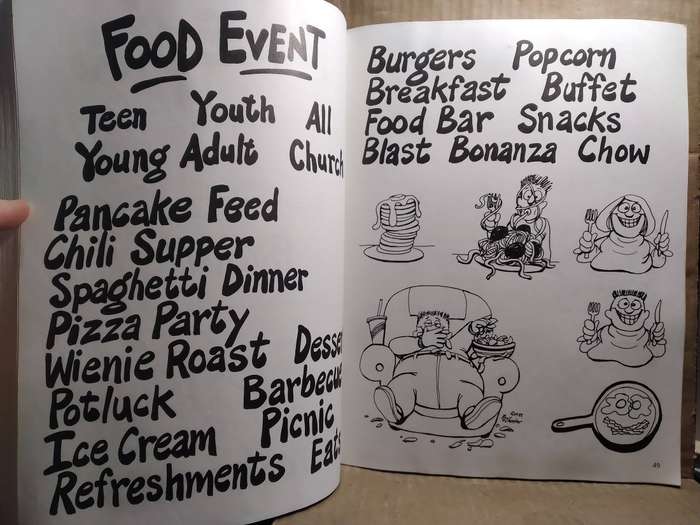 FOOD EVENT
Teen Youth All
Young Adult Church
Pancake Feed
Chili Supper
Spaghetti Dinner
Pizza Party
Wienie Roast Desse
Potluck Barbecue
Ice Cream Picnic
Refreshments Eats
Burgers Popcorn
Breakfast Buffet
Food Bar Snacks
Blast Bonanza Chow
49